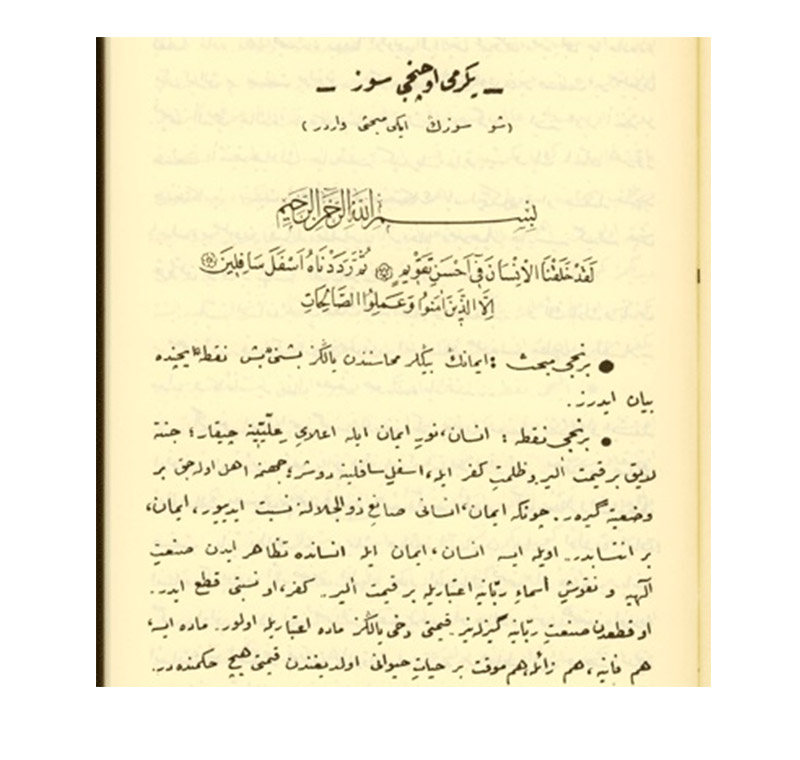 ـ يگرمى اوچنجى سوز ـ
(شو سوزك ايكى مبحثى واردر)
بِسْمِ اللهِ الرَّحْمٰنِ الرَّحِيمِ
لَقَدْ خَلَقْنَا الْاِنْسَانَ فِى اَحْسَنِ تَقْوِيمٍ ۞ ثُمَّ رَدَدْنَاهُ اَسْفَلَ سَافِلِينَ ۞
اِلَّا الَّذِينَ اٰمَنُوا وَعَمِلُوا الصَّالِحَاتِ
● برنجى مبحث : ايمانك بيكلر محاسنندن يالكز بشنى بش نقطه ايچنده
بيان ايدرز.
● برنجى نقطه : انسان، نورِ ايمان ايله اعلاىِ عِلِّيِّينه چيقار؛ جنته
لايق بر قيمت آلير. و ظلمتِ كفر ايله، اسفلِ سافلينه دوشر؛ جهنمه اهل اوله جق بر
وضعيته گيرر. چونكه ايمان، انسانى صانعِ ذوالجلالنه نسبت ايديور، ايمان،
بر انتسابدر. اويله ايسه انسان، ايمان ايله انسانده تظاهر ايدن صنعتِ
الٓهيه و نقوشِ أسماءِ ربّانيه اعتباريله بر قيمت آلير. كفر، او نسبتى قطع ايدر.
او قطعدن صنعتِ ربّانيه گيزلنير. قيمتى دخى يالكز ماده اعتباريله اولور. ماده ايسه،
هم فانيه، هم زائله، هم موقت بر حياتِ حيوانى اولديغندن قيمتى هيچ حكمنده در.